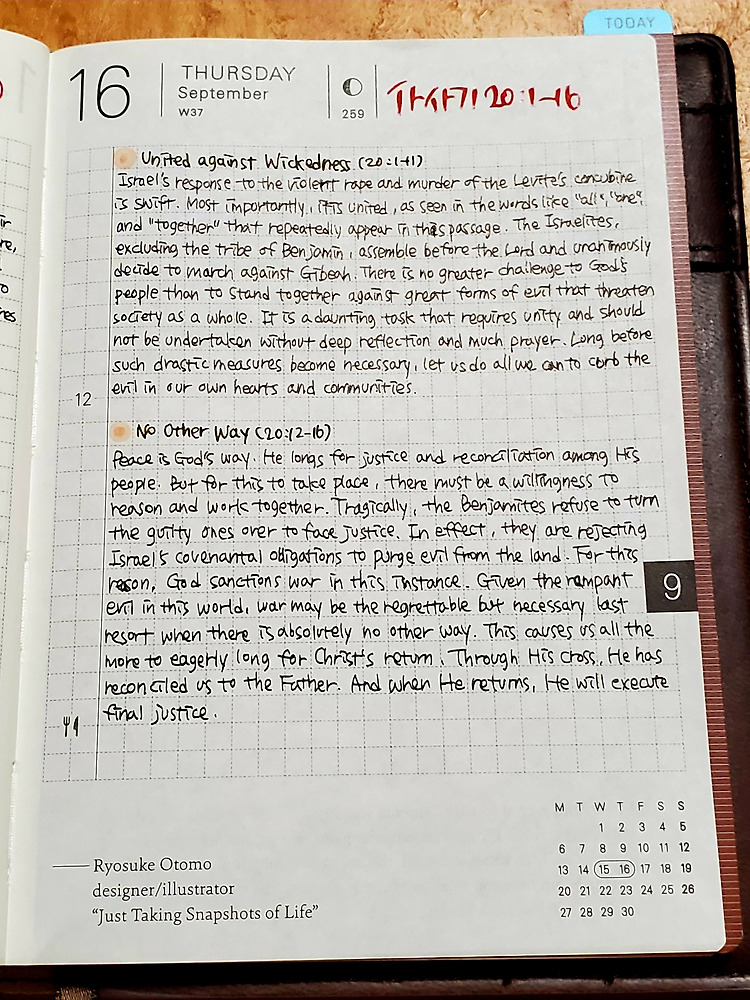 TODAY
16
THURSDAY
September
W37
259
사사기 20:1-16
United against Wickedness (20:1-11)
Israel's response to the violent rape and murder of the Levite's concubine
is swift. Most importantly, it is united, as seen in the words like "all", "one",
and "together" that repeatedly appear in this passage. The Israelites,
excluding the tribe of Benjamin, assemble before the Lord and unanimously
decide to march against Gibeah. There is no greater challenge to God's
people than to stand together against great forms of evil that threaten
society as a whole. It is a daunting task that requires unity and should
not be undertaken without deep reflection and much prayer. Long before
such drastic measures become necessary, let us do all we can to curb the
evil in our own hearts and communities.
12
No Other Way (20:12-16)
Peace is God's way. He longs for justice and reconciliation among His
people. But for this to take place, there must be a willingness to
reason and work together. Tragically, the Benjamites refuse to turn
the guilty ones over to face justice. In effect, they are rejecting
Israel's covenantal obligations to purge evil from the land. For this
reason, God sanctions war in this instance. Given the rampant
9
evil in this world, war may be the regrettable but necessary last
resort when there is absolutely no other way. This causes us all the
more to eagerly long for Christ's return. Through His cross, He has
reconciled us to the Father. And when He returns, He will execute
final justice.
M T W T F S S
1 2 3 4 5
6 7 8 9 10 11 12
13 14 15 16 17 18 19
20 21 22 23 24 25 26
27 28 29 30
Ryosuke Otomo
designer/illustrator
“Just Taking Snapshots of Life”